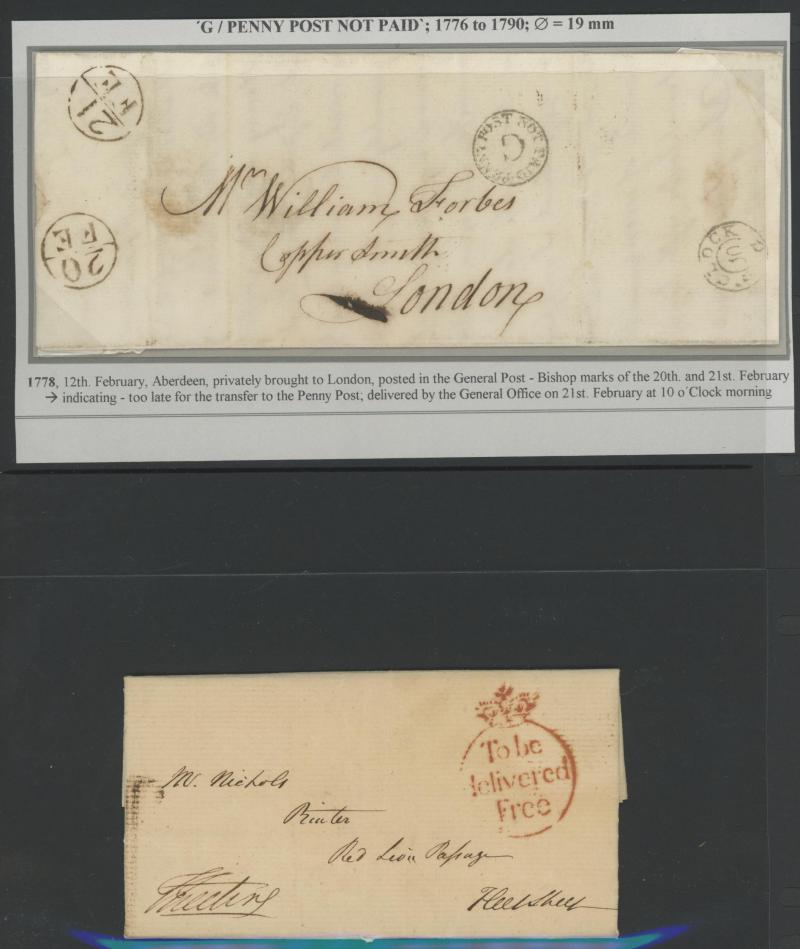 ´G / PENNY POST NOT PAID`; 1776 to 1790; ∅ = 19 mm
21 FE
PENNY POST NOT PAID
G
20 FE
CLOCK
Mr. William Forbes
Copper Smith
London
1778, 12th. February, Aberdeen, privately brought to London, posted in the General Post - Bishop marks of the 20th. and 21st. February
→ indicating - too late for the transfer to the Penny Post; delivered by the General Office on 21st. February at 10 o´Clock morning
To be
delivered
Free
Mr. Nichols
Printer
Red Lion Passage
Fleet Street